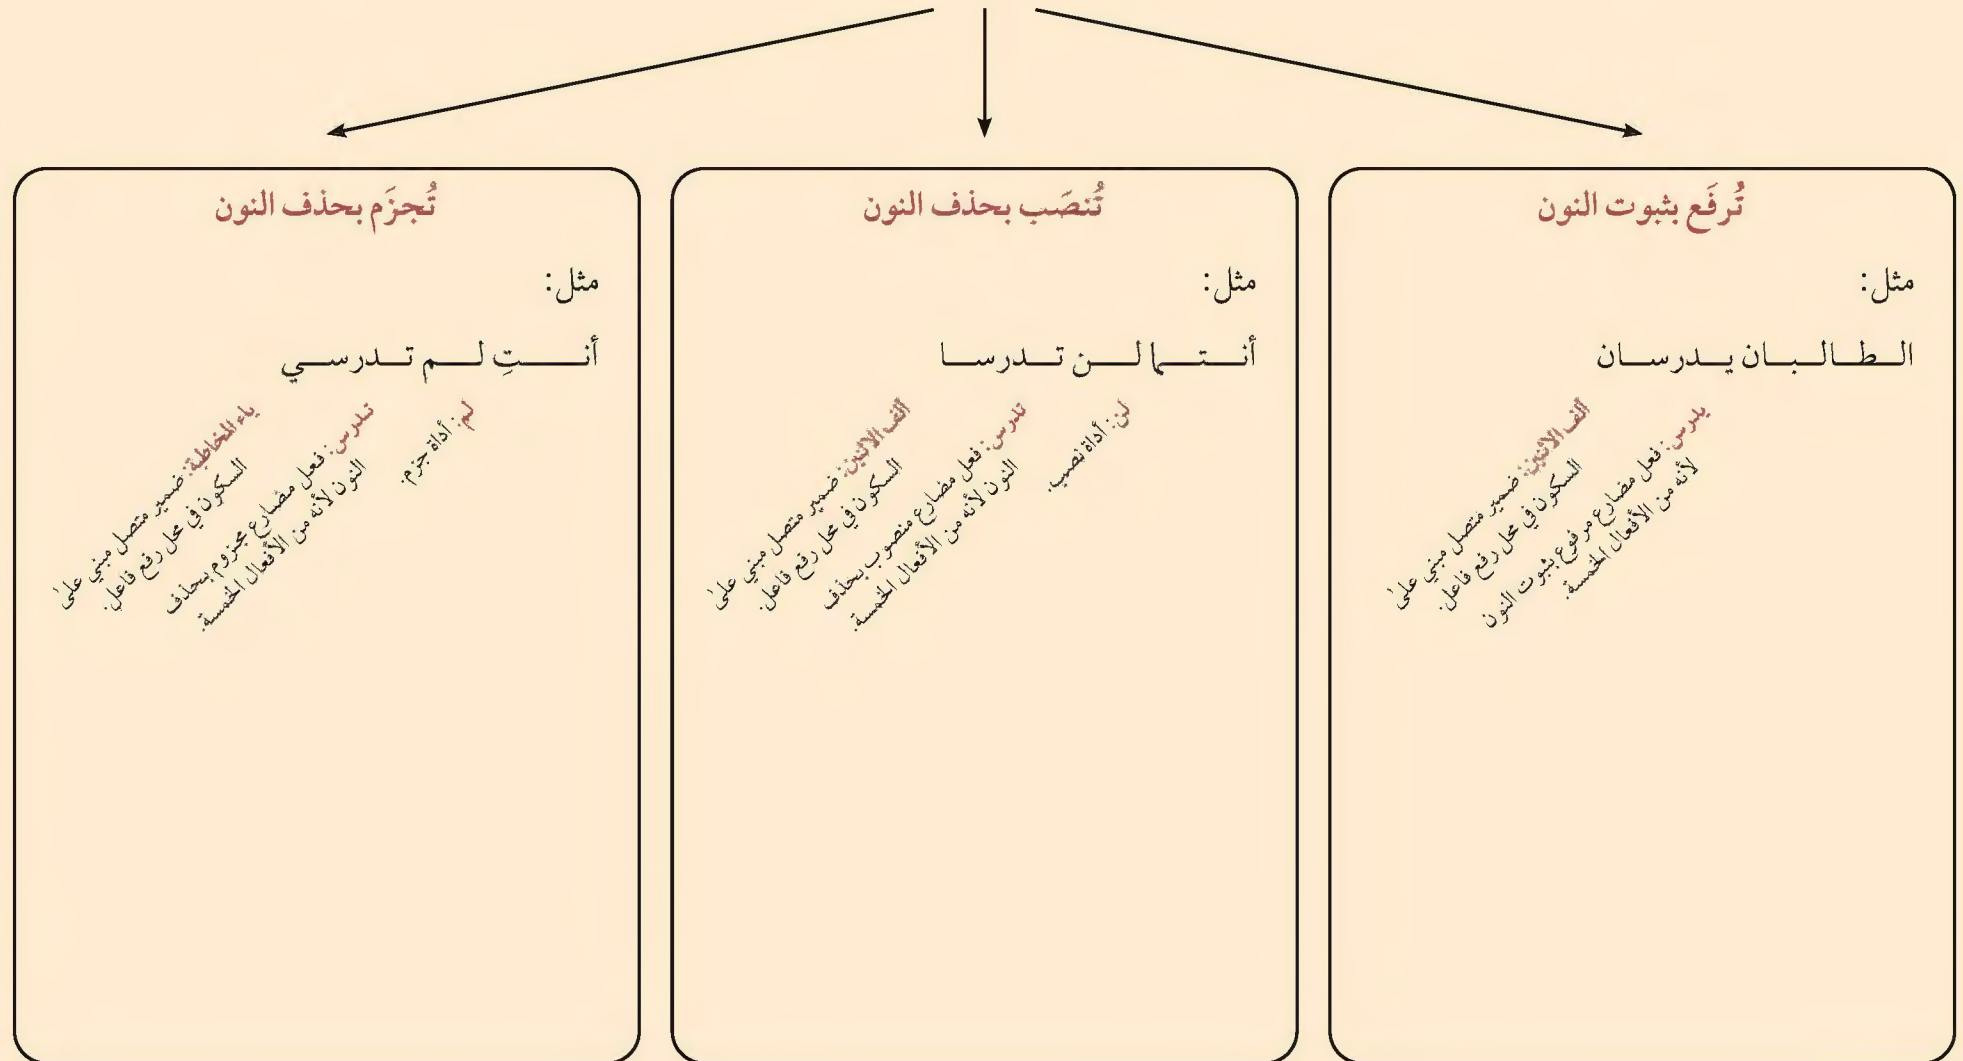 تُرفَع بثبوت النون
مثل:
الطالبان يدرسان
يدرس: فعل مضارع مرفوع بثبوت النون
لأنه من الأفعال الخمسة.
ألف الاثنين: ضمير متصل مبني علىٰ
السكون في محل رفع فاعل.
تُنصَب بحذف النون
مثل:
أنتما لن تدرسا
لن: أداة نصب.
تدرس: فعل مضارع منصوب بحذف
النون لأنه من الأفعال الخمسة.
ألف الاثنين: ضمير متصل مبني علىٰ
السكون في محل رفع فاعل.
تُجزَم بحذف النون
مثل:
أنتِ لم تدرسي
لم: أداة جزم.
تدرس: فعل مضارع مجزوم بحذف
النون لأنه من الأفعال الخمسة.
ياء المخاطبة: ضمير متصل مبني علىٰ
السكون في محل رفع فاعل.